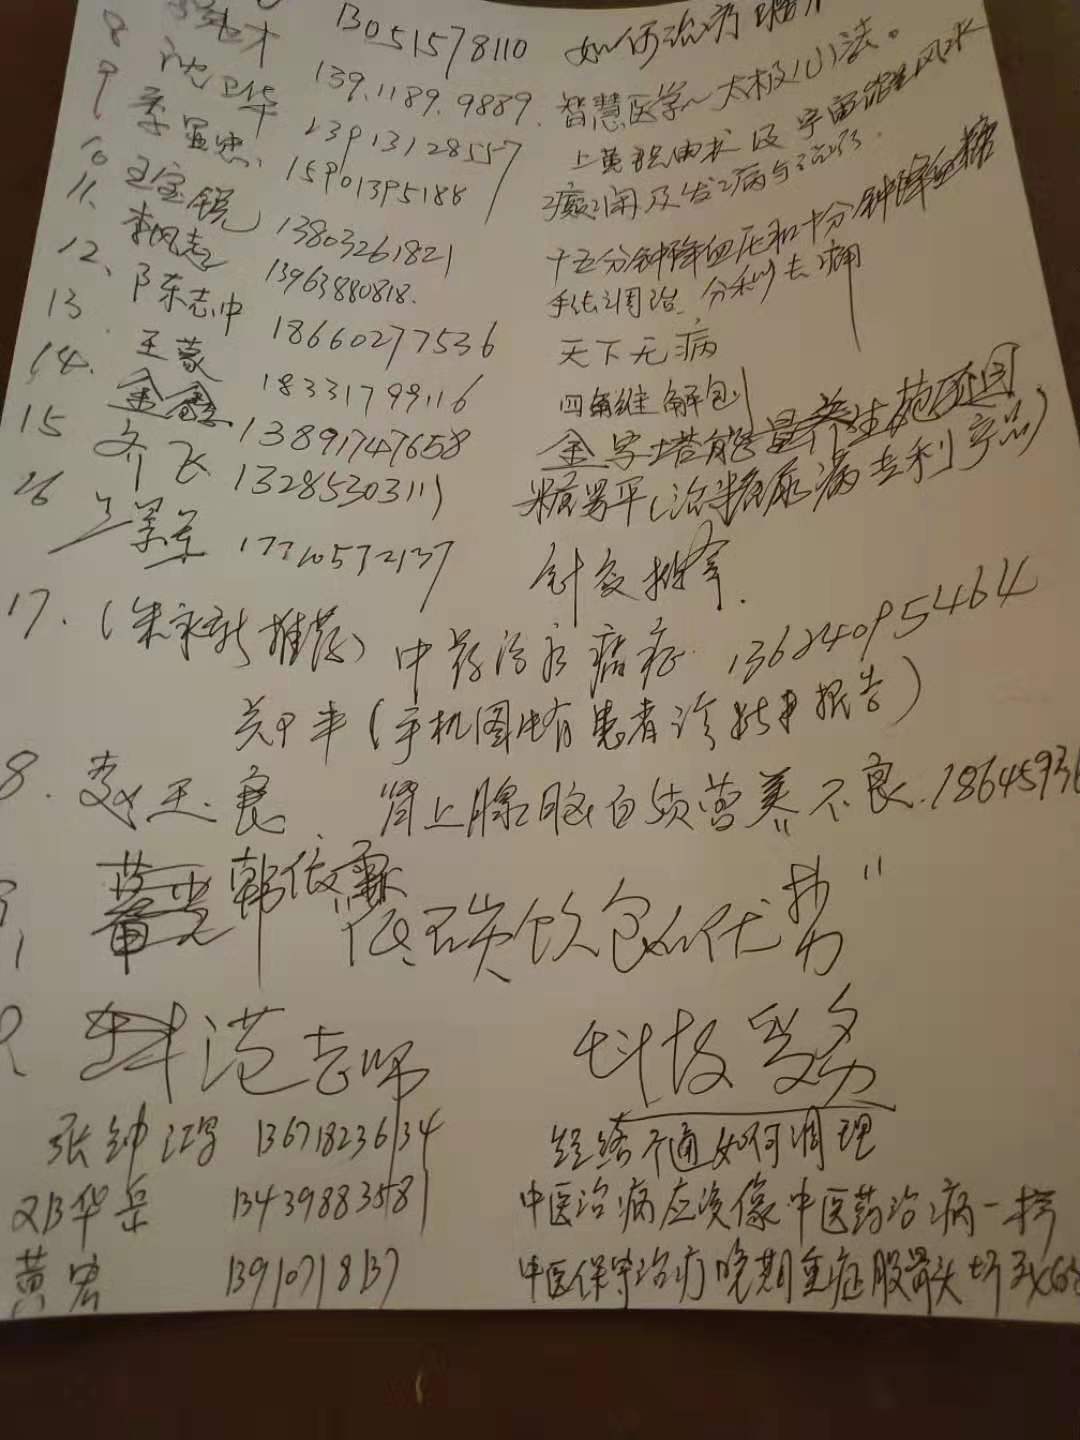 13051578110 如何治疗
8 沈卫华 139.1189.9889. 智慧医学~太极(U)法。
9 13913128557 及宇宙能量风水
10 王宝锐 15901395188 癫闲及发病与治疗.
11. 李凤志 13803261821 十五分钟降血压和十分钟降血糖
12、陈志中 13963880818. 手法调治、分秒去痛
13. 王蒙 18660277536 天下无病
14. 金鑫 18331799116 四角维解包
15 齐飞 13891747658 金字塔能量养生范围
26 13285303111 糖男平(治糖尿病专利产品)
17710572137 针灸推拿.
17. (朱永新推荐) 中药治疗癌症. 13624095464
关甲丰(手机图中有患者诊断书报告)
8. 赵天良、肾上腺脑白质营养不良.18645936
韩依霖 "低碳饮包的优势"
范老师 科技
张钟鸿 13671823634 经络不通如何调理
邓华岳 13439883581 中医治病应该像中医药治病一样
黄宏 13910718137 中医保守治疗晚期重症股骨头坏死